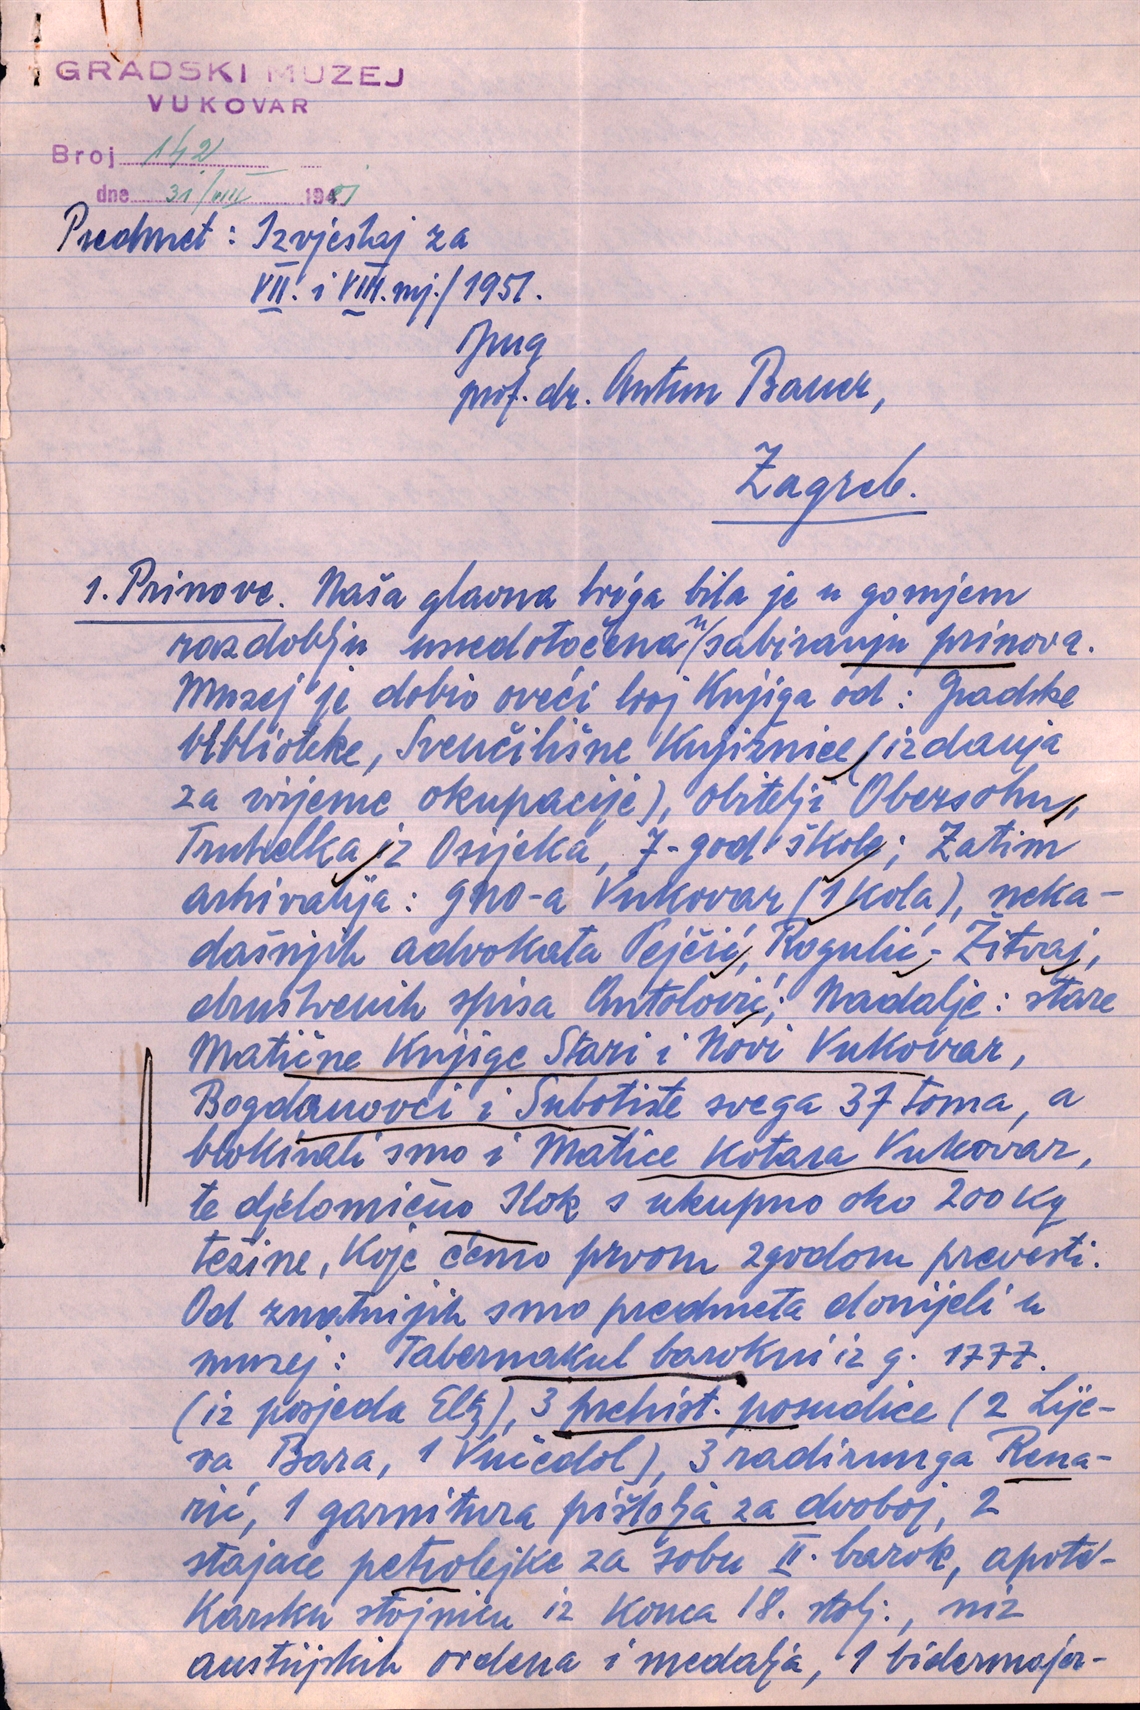 GRADSKI MUZEJ
VUKOVAR
Broj 142
dne 31/VIII 1951
Predmet: Izvještaj za
VII. i VIII. mj./1951.
Drug
prof. dr. Antun Bauer,
Zagreb.
1. Prinove. Naša glavna briga bila je u gornjem
razdoblju usredotočena u/sabiranju prinova.
Muzej je dobio oveći broj knjiga od: Gradske
biblioteke, Sveučilišne Knjižnice (izdanja
za vrijeme okupacije), obitelji Obersohn,
Truhelka iz Osijeka, 7-god škole; Zatim
arhivalija: GNO-a Vukovar (1 kola), neka-
dašnjih advokata Pejčić, Rogulić-Žitvaj,
društvenih spisa Antolović; Nadalje: stare
Matične Knjige Stari i Novi Vukovar,
Bogdanovci i Subotište svega 37 toma, a
blokirali smo i Matice Kotara Vukovar,
te djelomično Ilok s ukupno oko 200 kg
težine, koje ćemo prvom zgodom prevesti.
Od znatnijih smo predmeta donijeli u
muzej: Tabernakul barokni iz g. 1777.
(iz posjeda Eltz), 3 prehist. posudice (2 Lije-
va Bara, 1 Vučedol), 3 radirunga Rena-
rić, 1 garnitura pištolja za dvoboj, 2
stajaće petrolejke za sobu II. barok, apote-
karsku stojnicu iz konca 18. stolj., niz
austrijskih ordena i medalja, 1 bidermajer-